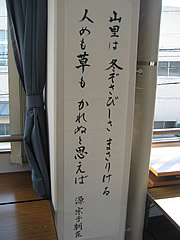 山里は 冬ぞさびしさ まさりける
人めも草も かれぬと思えば
源 宗于朝臣